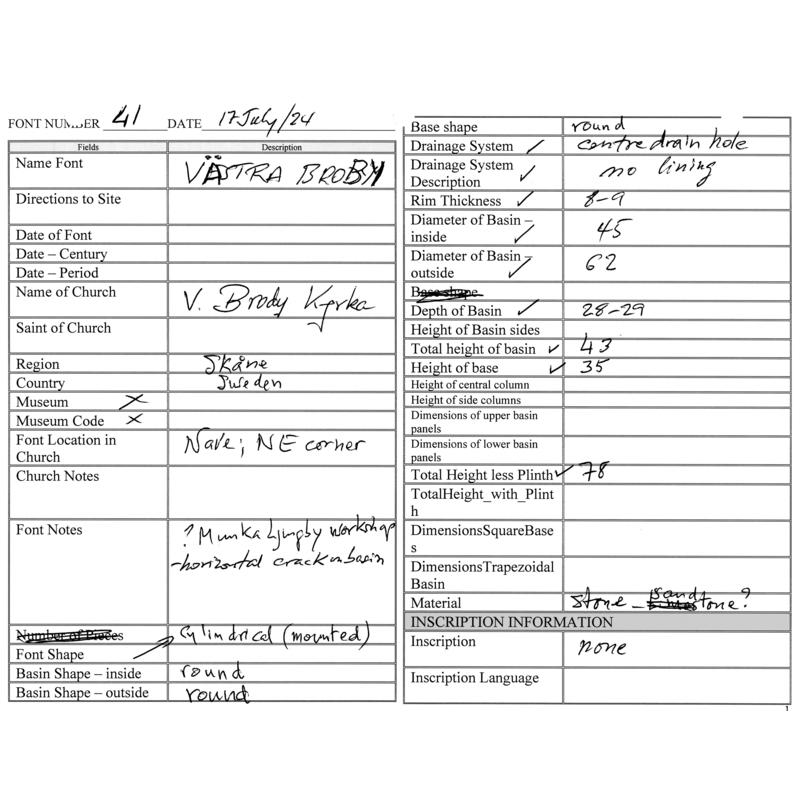 FONT NUMBER 41 DATE 17 July/24
Fields Description
Name Font VÄSTRA BROBY
Directions to Site
Date of Font
Date – Century
Date – Period
Name of Church V. Brody Kyrka
Saint of Church
Region Skåne
Country Sweden
Museum X
Museum Code X
Font Location in Nave; NE corner
Church
Church Notes
Font Notes ? Munka Ljungby workshop
-horizontal crack in basin
Number of Pieces Cylindrical (mounted)
Font Shape
Basin Shape – inside round
Basin Shape – outside round
Base shape round
Drainage System ✓ centre drain hole
Drainage System ✓ no lining
Description
Rim Thickness ✓ 8-9
Diameter of Basin – 45
inside ✓
Diameter of Basin – 62
outside ✓
Base shape
Depth of Basin ✓ 28-29
Height of Basin sides
Total height of basin ✓ 43
Height of base ✓ 35
Height of central column
Height of side columns
Dimensions of upper basin
panels
Dimensions of lower basin
panels
Total Height less Plinth ✓ 78
TotalHeight_with_Plint
h
DimensionsSquareBase
s
DimensionsTrapezoidal
Basin
Material stone – sandstone?
INSCRIPTION INFORMATION
Inscription none
Inscription Language
1